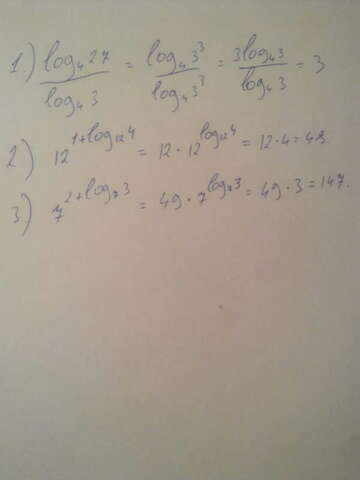 1.) log₄27 / log₄3 = log₄3³ / log₄3³ = 3log₄3 / log₄3 = 3
2) 12^(1+log₁₂4) = 12 · 12^(log₁₂4) = 12·4=48.
3) 7^(2+log₇3) = 49 · 7^(log₇3) = 49 · 3 = 147.